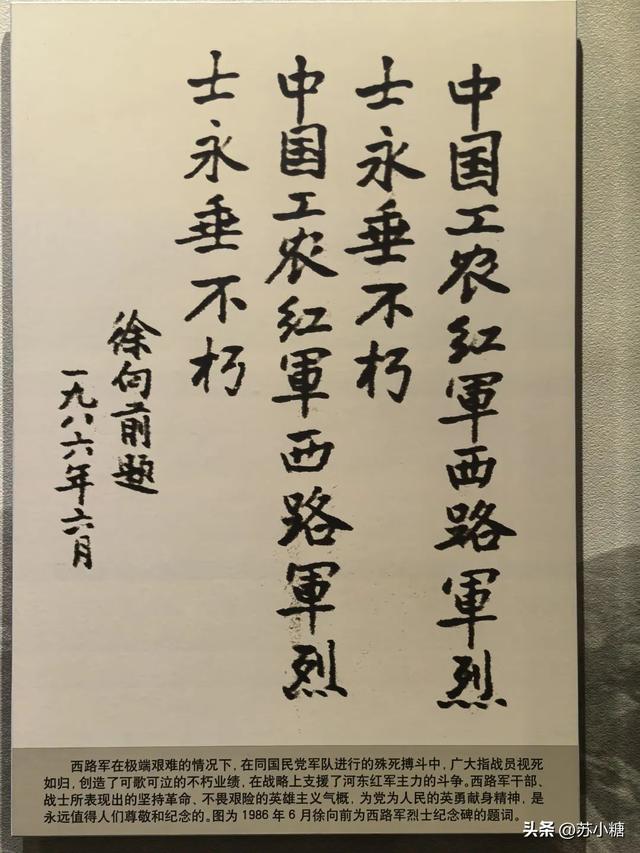 中国工农红軍西路軍烈
士永垂不朽
中国工农红軍西路軍烈
士永垂不朽
徐向前题
一九八六年六月
西路军在极端艰难的情况下，在同国民党军队进行的殊死搏斗中，广大指战员视死
如归，创造了可歌可泣的不朽业绩，在战略上支援了河东红军主力的斗争。西路军干部、
战士所表现出的坚持革命、不畏艰险的英雄主义气概，为党为人民的英勇献身精神，是
永远值得人们尊敬和纪念的。图为 1986 年 6 月徐向前为西路军烈士纪念碑的题词。
头条 @苏小糖